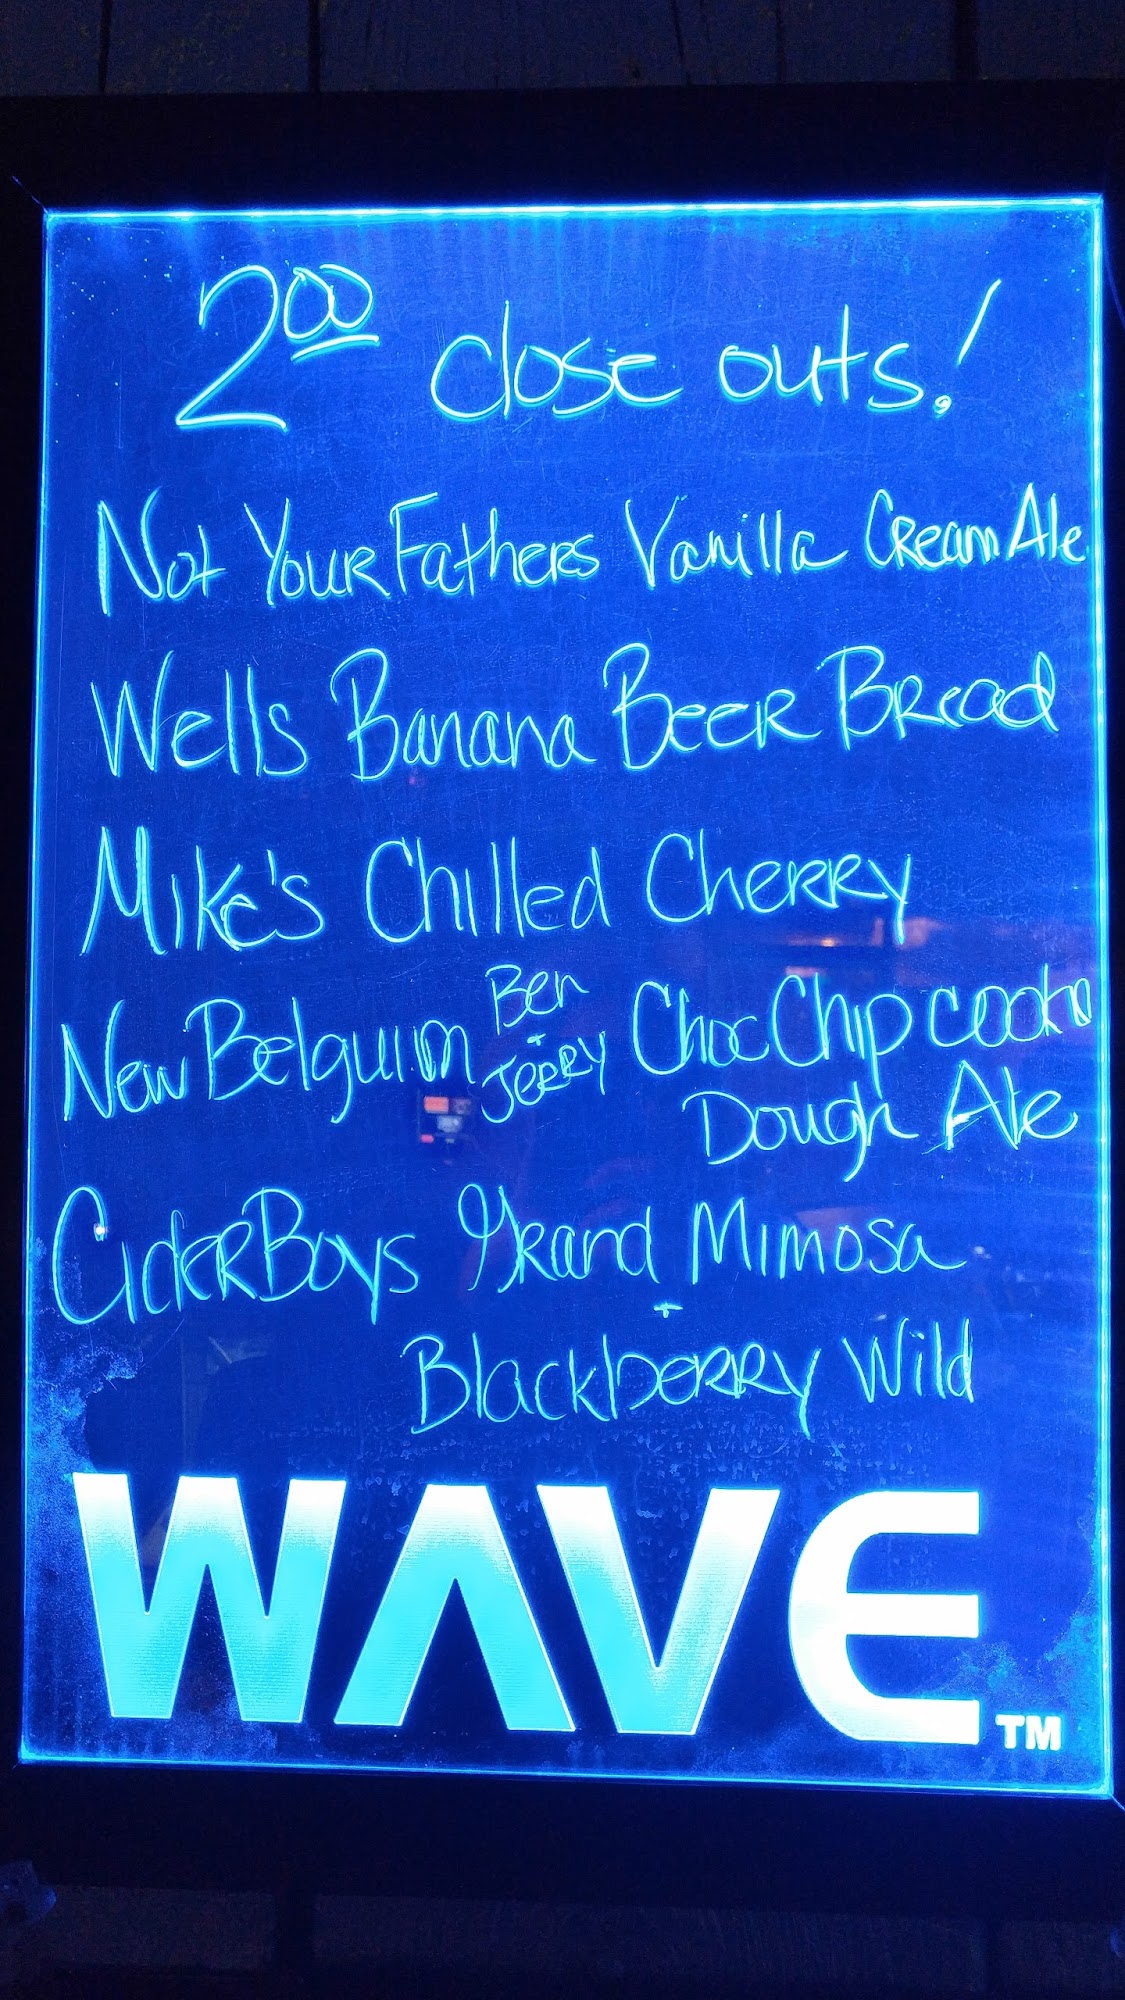 2 00 close outs!
Not Your Fathers Vanilla Cream Ale
Wells Banana Beer Bread
Mike's Chilled Cherry
New Belguim Ben + Jerry Choc Chip cookie
Dough Ale
CiderBoys Grand Mimosa
+
Blackberry Wild
WAVE TM